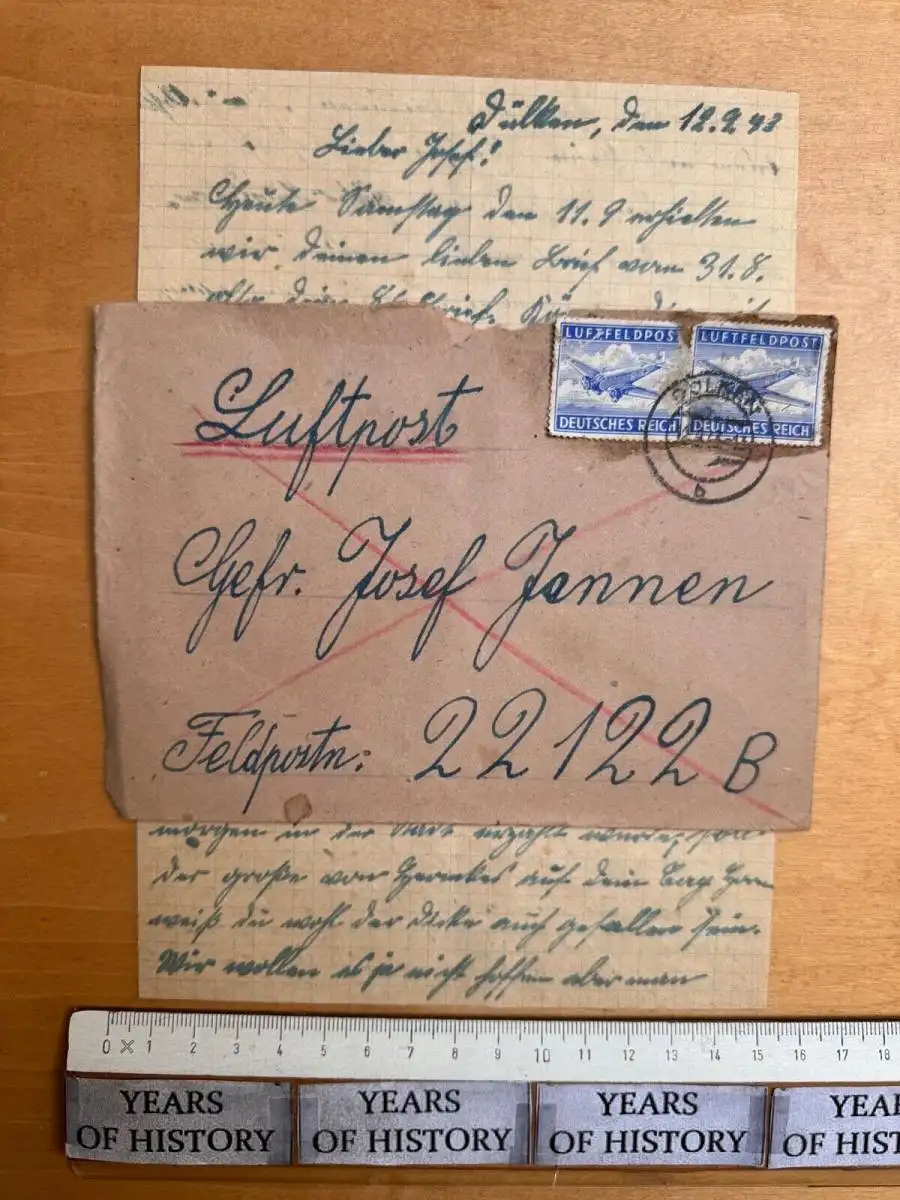 Dülken, den 12.9.43
Lieber Josef!
Heute Samstag den 11.9 erhielten
wir Deinen lieben Brief vom 31.8.
LUFTFELDPOST
DEUTSCHES REICH
LUFTFELDPOST
DEUTSCHES REICH
DÜLKEN
b
Luftpost
Gefr. Josef Jennen
Feldpostn: 22122 B
morgen in der Stadt erzählt wurde, soll
der große von auf dem
weiß du wohl der dicke auch gefallen sein.
Wir wollen es ja nicht hoffen aber man
0 1 2 3 4 5 6 7 8 9 10 11 12 13 14 15 16 17 18
YEARS OF HISTORY
YEARS OF HISTORY
YEARS OF HISTORY
YEA
OF HIST